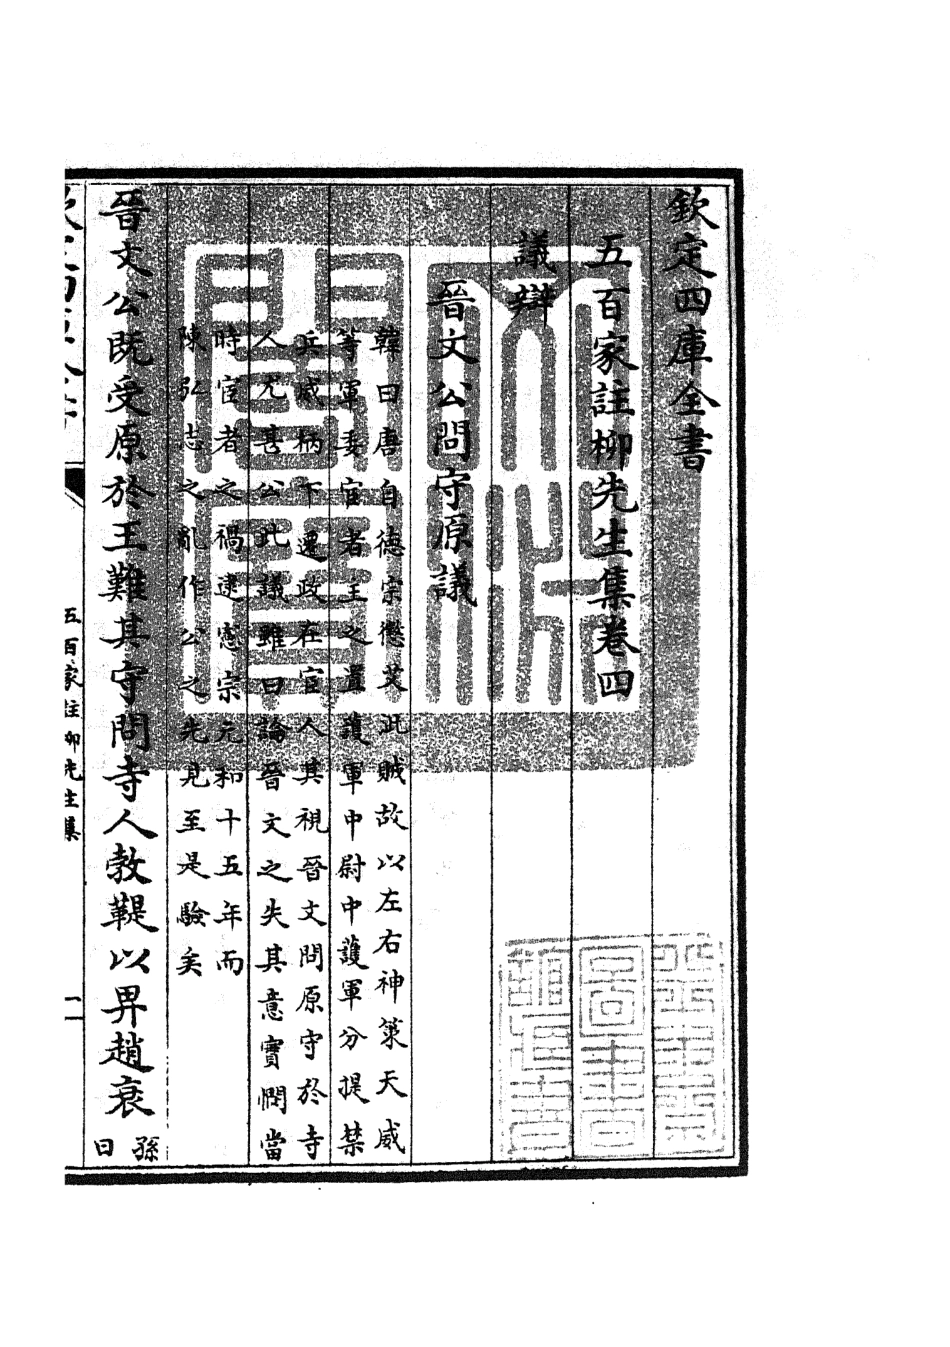 欽定四庫全書
五百家註柳先生集卷四
議辯
晉文公問守原議
韓曰唐自德宗懲艾此賊故以左右神策天威
等軍委宦者主之置護軍中尉中護軍分提禁
兵威柄下遷政在宦人其視晉文問原守於寺
人尤甚公此議雖曰論晉文之失其意實憫當
時宦者之禍逮憲宗元和十五年而
陳弘志之亂作公之先見至是驗矣
晉文公既受原於王難其守問寺人勃鞮以畀趙衰
孫
曰
五百家註柳先生集
一